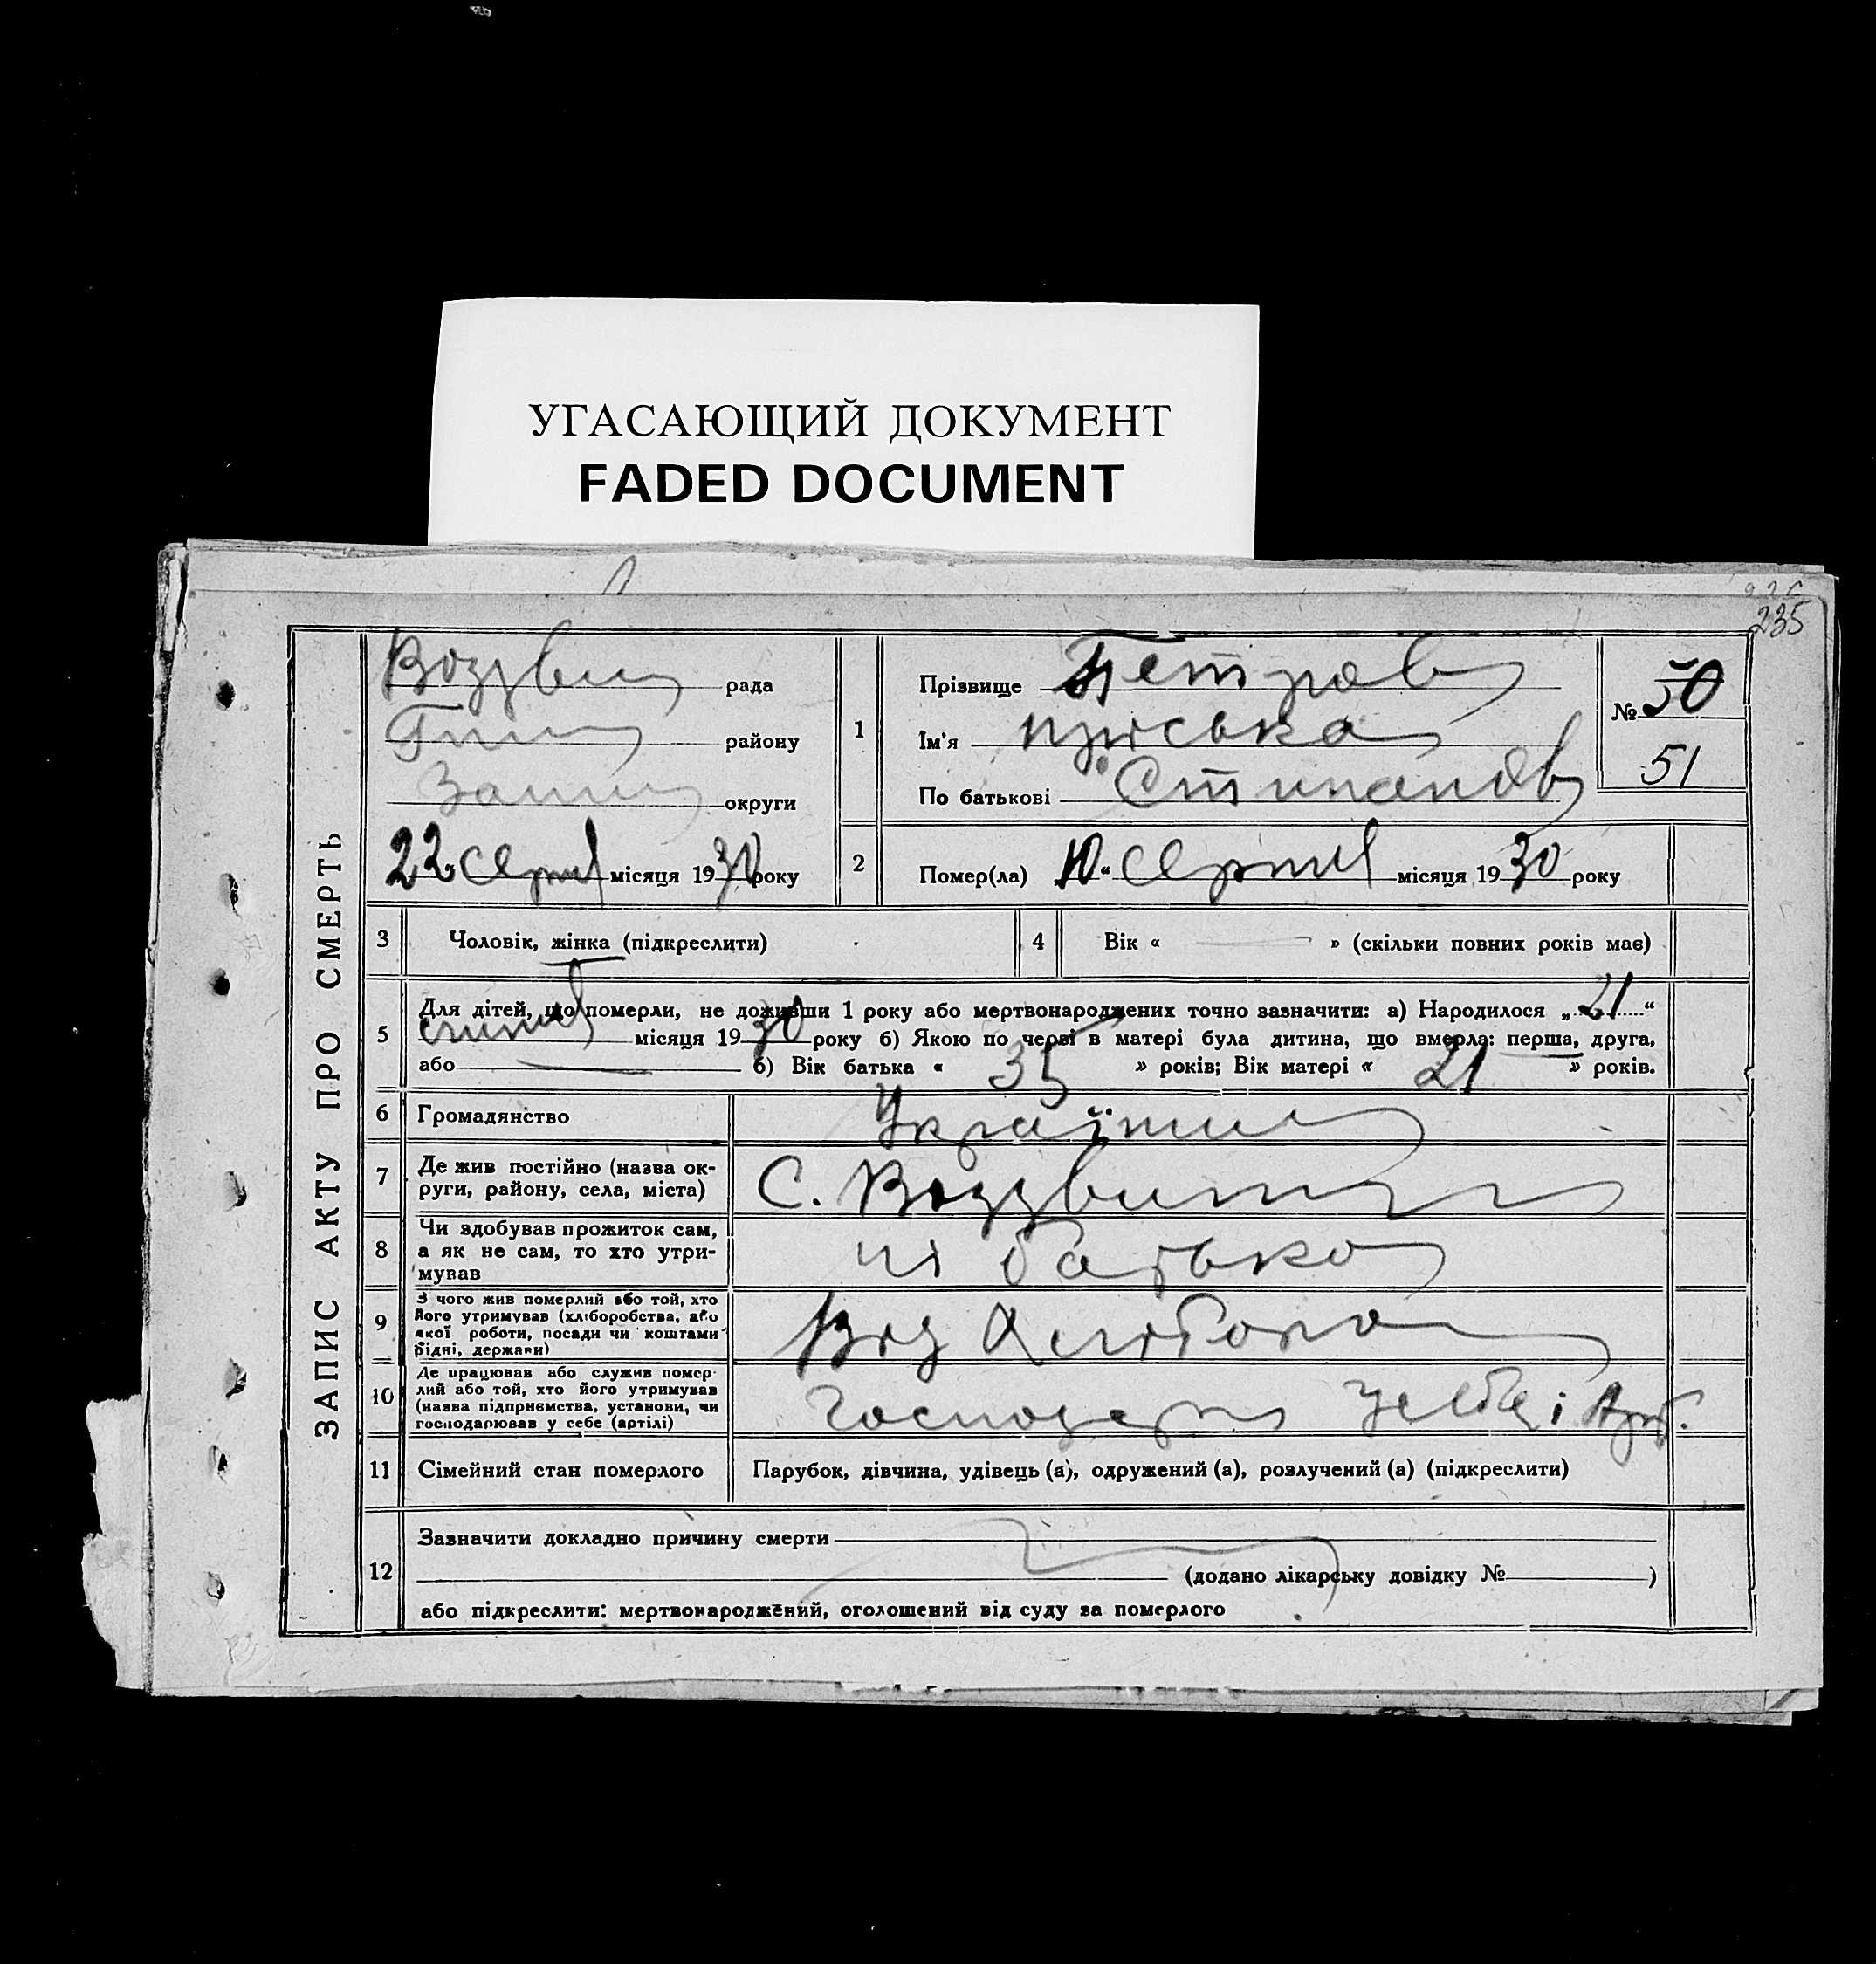 УГАСАЮЩИЙ ДОКУМЕНТ
FADED DOCUMENT
235
ЗАПИС АКТУ ПРО СМЕРТЬ
рада
району
округи
22 Серпня місяця 1930 року
1
Прізвище Петров
Ім'я Пріська
По батькові Стипанов
№ 50
51
2
Помер(ла) 10 „ Серпня місяця 1930 року
3
Чоловік, жінка (підкреслити)
4
Вік « — » (скільки повних років має)
5
Для дітей, що померли, не доживши 1 року або мертвонароджених точно зазначити: а) Народилося „ 21 “
місяця 1930 року б) Якою по черзі в матері була дитина, що вмерла: перша, друга,
або — б) Вік батька « 35 » років; Вік матері « 21 » років.
6
Громадянство
7
Де жив постійно (назва ок-
руги, району, села, міста)
С.
8
Чи здобував прожиток сам,
а як не сам, то хто утри-
мував
ні батько
9
З чого жив померлий або той, хто
його утримував (хліборобства, або
якої роботи, посади чи коштами
рідні, держави)
Від
10
Де працював або служив помер-
лий або той, хто його утримував
(назва підприємства, установи, чи
господарював у себе (артілі)
11
Сімейний стан померлого
Парубок, дівчина, удівець (а), одружений (а), розлучений (а) (підкреслити)
12
Зазначити докладно причину смерти
(додано лікарську довідку № )
або підкреслити: мертвонароджений, оголошений від суду за померлого